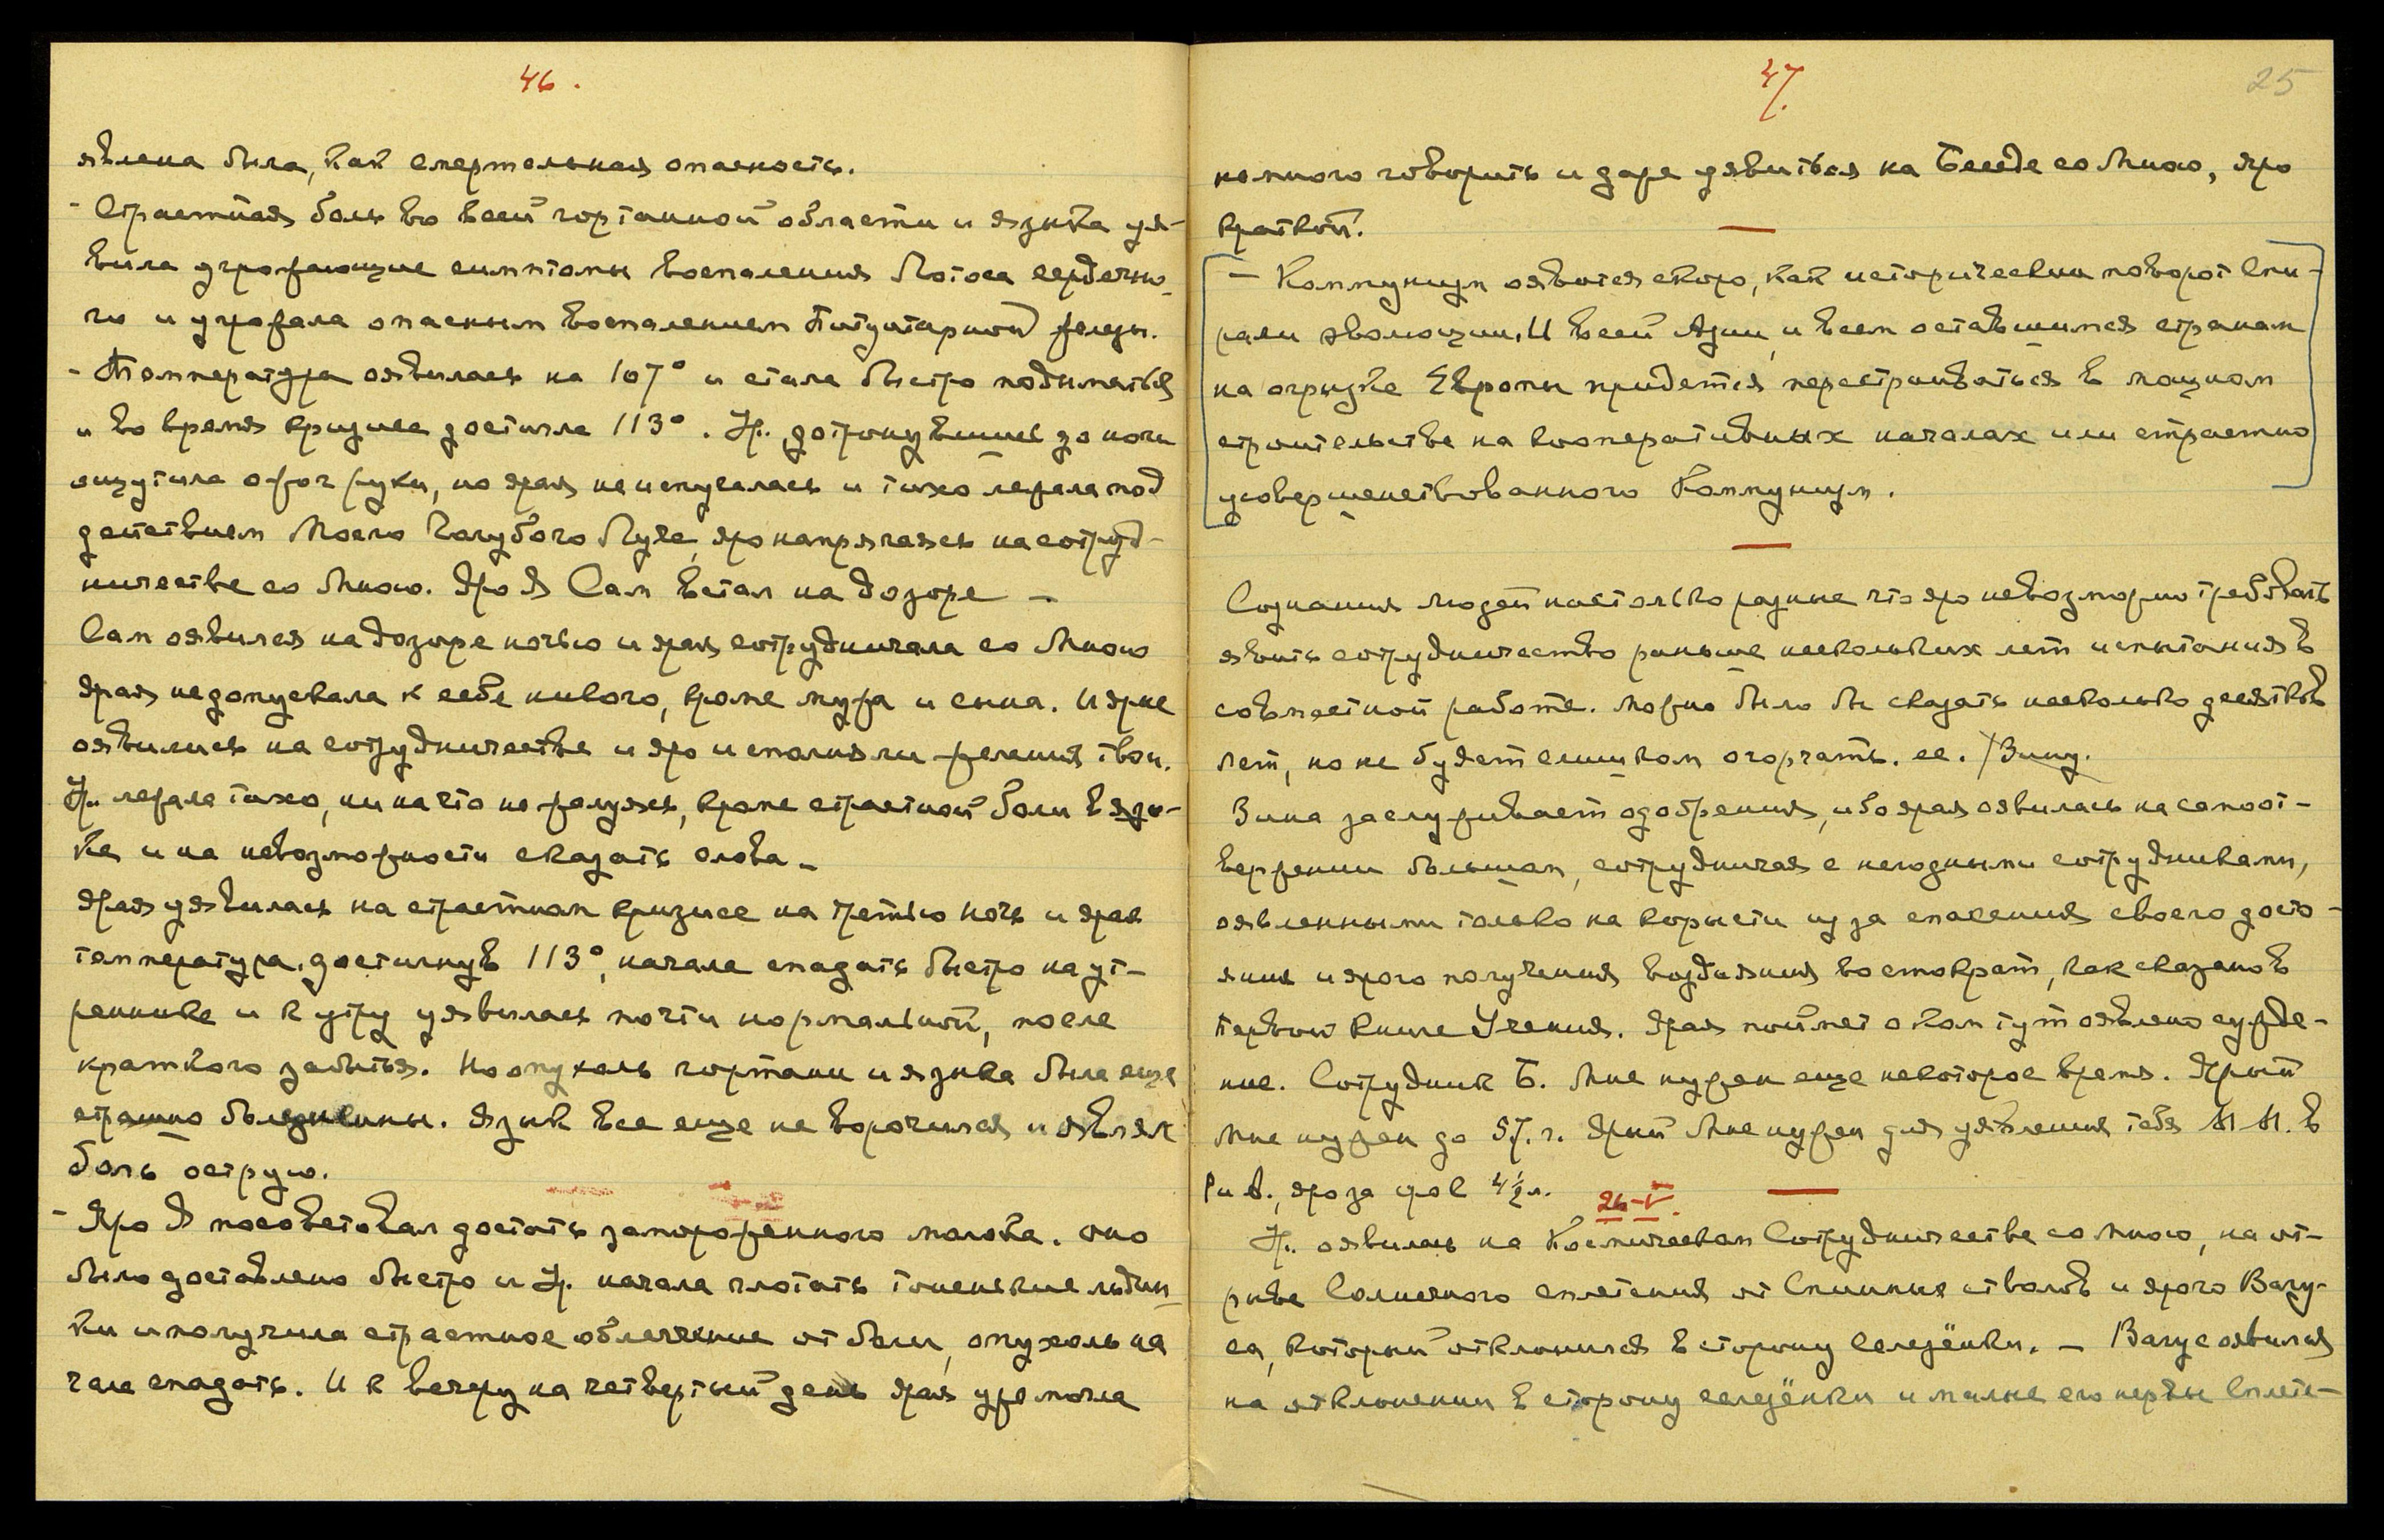 46.
явлена была, как смертельная опасность.
- Страстная боль во всей гортанной области и языка уя-
вила угрожающие симптомы воспаления Лотоса сердечно-
го и угрожала опасным воспалением Питуитарной железы.
- Температура оявилась на 107° и стала быстро подыматься
и во время кризиса достигла 113°. Ур. дотронувшись до ноги
ощутила ожог руки, но ярая не испугалась и тихо лежала под
действием Моего Голубого Луча, яро напрягаясь на сотруд-
ничестве со Мною. Яро Я Сам встал на дозоре —
Сам оявился на дозоре ночью и ярая сотрудничала со Мною
ярая не допускала к себе никого, кроме мужа и сына. И ярые
оявились на сотрудничестве и яро исполняли желания твои.
Ур. лежала тихо, ни на что не жалуясь, кроме страстной боли в язы-
ке и на невозможности сказать слова –
Ярая уявилась на страстном кризисе на третью ночь и ярая
температура, достигнув 113°, начала спадать быстро на ут-
реннике и к утру уявилась почти нормальной, после
краткого забытья. Но опухоль гортани и языка была еще
страшно болезненны. Язык все еще не ворочился и являл
боль острую.
- Яро Я посоветовал достать замороженного молока. Оно
было доставлено быстро и Ур. начала глотать тоненькие льдин-
ки и получила страстное облегчение от боли, опухоль на
чала спадать. И к вечеру на четвертый день ярая уже могла
47.
25
немного говорить и даже уявиться на Беседе со Мною, яро
краткой.
- Коммунизм оявится скоро, как исторический поворот Спи-
рали эволюции. И всей Азии, и всем оставшимся странам
на огрызке Европы придется перестраиваться в мощном
строительстве на кооперативных началах или страстно
усовершенствованного Коммунизм.
Сознания людей настолько разные что яро невозможно требовать
явить сотрудничество раньше нескольких лет испытания в
совместной работе. Можно было бы сказать несколько десятков
лет, но не будем слишком огорчать. ее. /Зину.
Зина заслуживает одобрения, ибо ярая оявилась на самоот-
вержении большом, сотрудничая с негодными сотрудниками,
оявленными только на корысти из за спасения своего досто-
яния и ярого получения воздаяния во стократ, как сказано в
первой книге Учения. Ярая поймет о ком тут оявлено сужде-
ние. Сотрудник Б. Мне нужен еще некоторое время. Ярый
Мне нужен до 57. г. Ярый Мне нужен для уявления тебя М. М. в
яро за 4½ л.
26-V.
Ур. оявилась на Космическом Сотрудничестве со Мною, на от-
рыве Солнечного сплетения от Спинных стволов и ярого Вагу-
са, который отклонился в сторону селезёнки. — Вагус оявился
на отклонении в сторону селезёнки и малые его нервы Сплете-